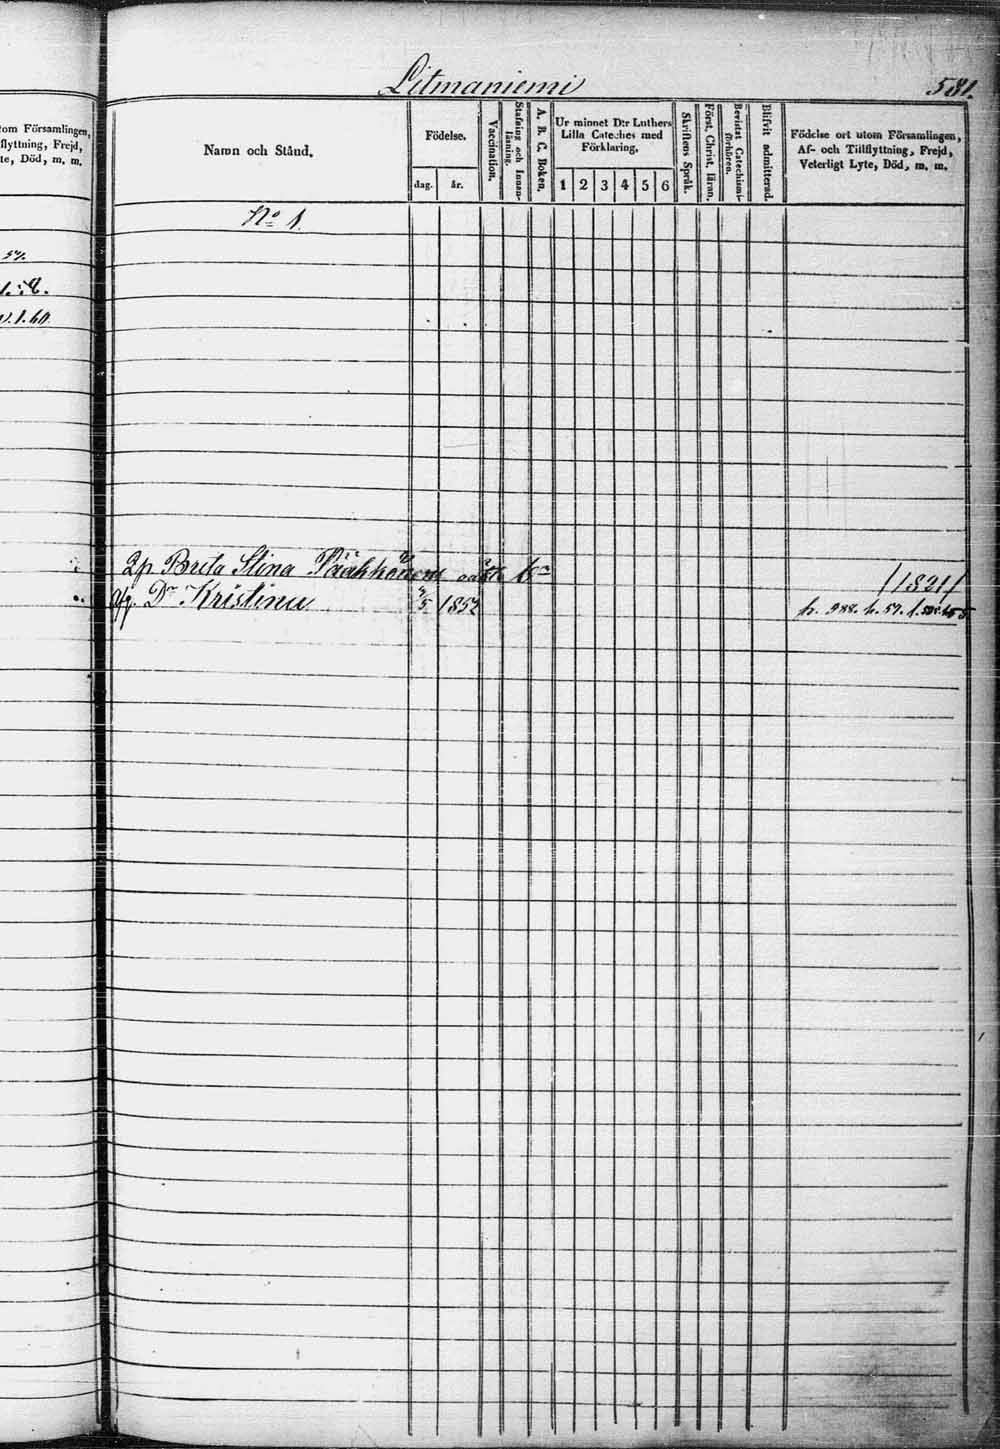 Litmaniemi
581.
tom Församlingen,
flyttning, Frejd,
te, Död, m. m.
Namn och Stånd.
Födelse.
dag.
år.
Vaccination.
Stafning och Innan-
läsning.
A. B. C. Boken.
Ur minnet D:r Luthers
Lilla Cateches med
Förklaring.
1 2 3 4 5 6
Skriftens Språk.
Först. Christ. läran.
Bevistat Catechismi-
förhören.
Blifvit admitterad.
Födelse ort utom Församlingen,
Af- och Tillflyttning, Frejd,
Veterligt Lyte, Död, m. m.
No 1.
57.
1.60
Brita Stina Pääkkönen
/1821/
Dr Kristina 1852
h. 57.